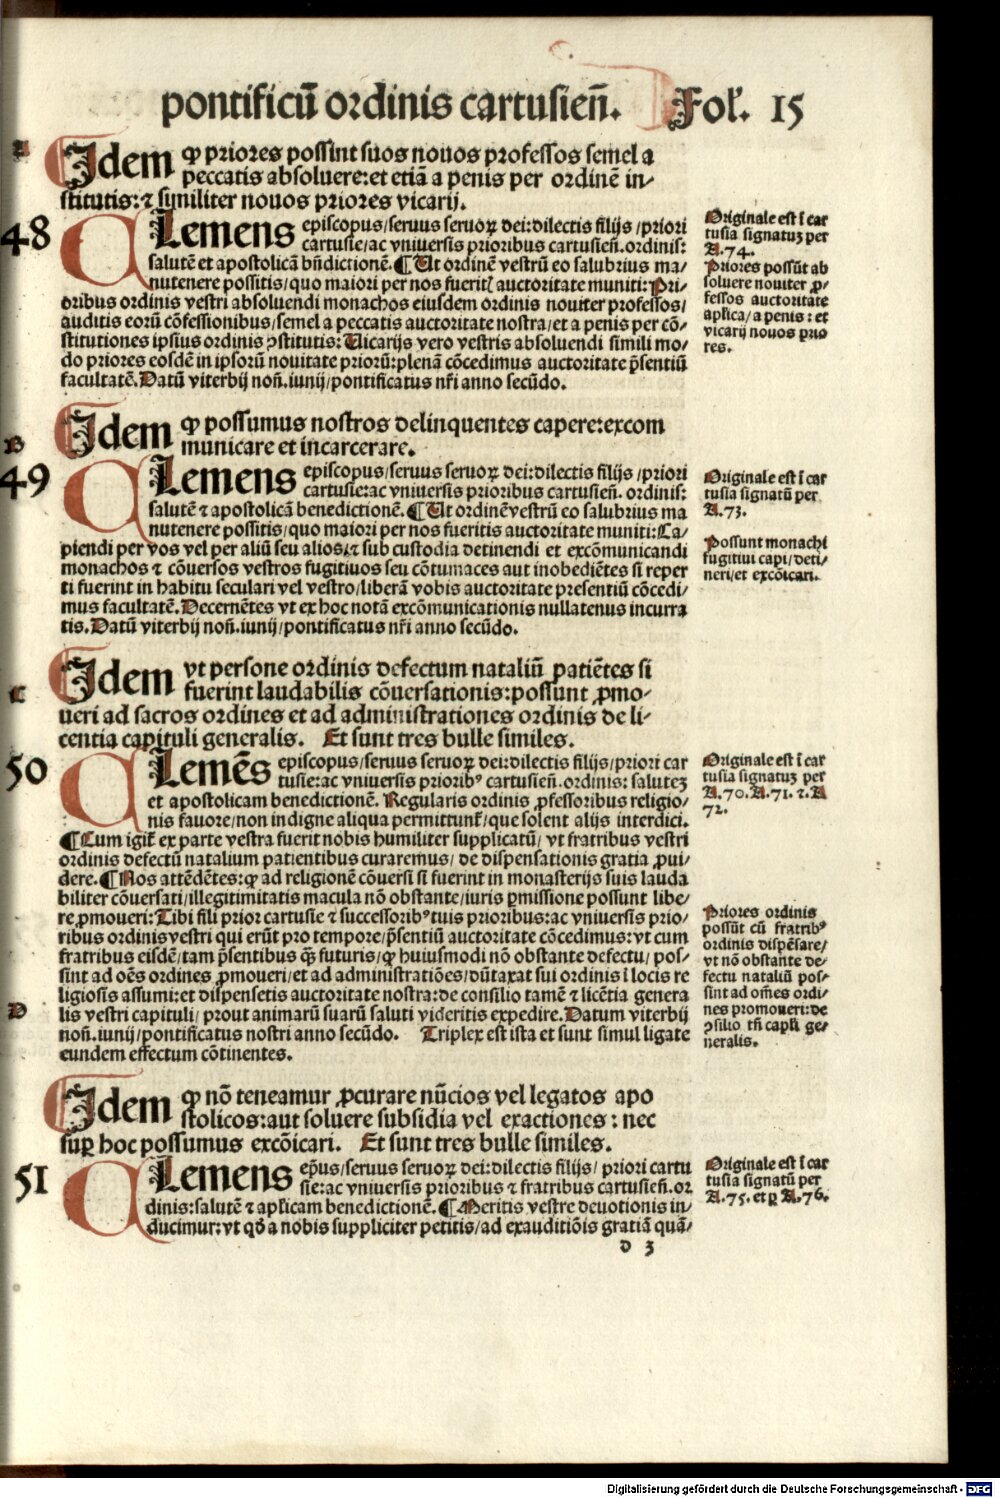 pontificū ordinis cartusieñ. Fol. 15
A
Idem ꝙ priores possint suos nouos professos semel a
peccatis absoluere:et etiā a penis per ordinē in-
stitutis:⁊ similiter nouos priores vicarij.
48
CLemens episcopus/seruus seruoꝝ dei:dilectis filijs/priori
cartusie/ac vniuersis prioribus cartusieñ.ordinis:
salutē et apostolicā bñdictionē.¶Ut ordinē vestrū eo salubrius ma-
nutenere possitis/quo maiori per nos fuerit auctoritate muniti:Pri-
oribus ordinis vestri absoluendi monachos eiusdem ordinis nouiter professos/
auditis eorū cōfessionibus/semel a peccatis auctoritate nostra/et a penis per cō-
stitutiones ipsius ordinis ꝯstitutis:Uicarijs vero vestris absoluendi simili mo-
do priores eosdē in ipsorū nouitate priorū:plenā cōcedimus auctoritate p̄sentiū
facultatē.Datū viterbij noñ.iunij/pontificatus nr̄i anno secūdo.
Originale est ī car
tusia signatuꝫ per
A.74.
Priores possūt ab
soluere nouiter ꝓ-
fessos auctoritate
aplica/a penis:et
vicarij nouos prio
res.
B
Idem ꝙ possumus nostros delinquentes capere:excom
municare et incarcerare.
49
CLemens episcopus/seruus seruoꝝ dei:dilectis filijs/priori
cartusie:ac vniuersis prioribus cartusieñ. ordinis:
salutē ⁊ apostolicā benedictionē.¶Ut ordinēvestrū eo salubrius ma
nutenere possitis/quo maiori per nos fueritis auctoritate muniti:Ca-
piendi per vos vel per aliū seu alios:⁊ sub custodia detinendi et excōmunicandi
monachos ⁊ cōuersos vestros fugitiuos seu cōtumaces aut inobediētes si reper
ti fuerint in habitu seculari vel vestro/liberā vobis auctoritate presentiū cōcedi-
mus facultatē.Decernētes vt ex hoc notā excōmunicationis nullatenus incurra
tis.Datū viterbij noñ.iunij/pontificatus nr̄i anno secūdo.
Originale est ī car
tusia signatū per
A.73.
Possunt monachi
fugitiui capi/deti-
neri/et excōicari.
C
Idem vt persone ordinis defectum nataliū patiētes si
fuerint laudabilis cōuersationis:possunt ꝓmo-
ueri ad sacros ordines et ad administrationes ordinis de li-
centia capituli generalis. Et sunt tres bulle similes.
50
CLemēs episcopus/seruus seruoꝝ dei:dilectis filijs/priori car
tusie:ac vniuersis prioribꝰ cartusieñ.ordinis: salutez
et apostolicam benedictionē. Regularis ordinis ꝓfessoribus religio-
nis fauore/non indigne aliqua permittunt̄/que solent alijs interdici.
¶Cum igit̄ ex parte vestra fuerit nobis humiliter supplicatū/ vt fratribus vestri
ordinis defectū natalium patientibus curaremus/ de dispensationis gratia ꝓui-
dere.¶Nos attēdētes:ꝙ ad religionē cōuersi si fuerint in monasterijs suis lauda
biliter cōuersati/illegitimitatis macula nō obstante/iuris ꝑmissione possunt libe-
re ꝓmoueri:Tibi fili prior cartusie ⁊ successoribꝰ tuis prioribus:ac vniuersis prio-
ribus ordinis vestri qui erūt pro tempore/p̄sentiū auctoritate cōcedimus:vt cum
fratribus eisdē/tam p̄sentibus ꝙ̄ futuris/ꝙ huiusmodi nō obstante defectu/ pos-
sint ad oēs ordines ꝓmoueri/et ad administratiōes/dūtaxat sui ordinis ī locis re
ligiosis assumi:et dispensetis auctoritate nostra:de consilio tamē ⁊ licētia genera
lis vestri capituli/ prout animarū suarū saluti videritis expedire.Datum viterbij
noñ.iunij/pontificatus nostri anno secūdo. Triplex est ista et sunt simul ligate
eundem effectum cōtinentes.
Originale est ī car
tusia signatuꝫ per
A.70.A.71.⁊.A
72.
Priores ordinis
possūt cū fratribꝰ
ordinis dispēsare/
vt nō obstante de-
fectu nataliū pos-
sint ad oēs ordi-
nes promoueri:de
ꝯsilio tñ capli ge-
neralis.
D
Idem ꝙ nō teneamur ꝓcurare nūcios vel legatos apo
stolicos:aut soluere subsidia vel exactiones : nec
suꝑ hoc possumus excōicari. Et sunt tres bulle similes.
51
CLemens ep̄us/seruus seruoꝝ dei:dilectis filijs/ priori cartu
sie:ac vniuersis prioribus ⁊ fratribus cartusieñ.or
dinis:salutē ⁊ aplicam benedictionē.¶Meritis vestre deuotionis in-
ducimur:vt qd̄ a nobis suppliciter petitis/ad exauditiōis gratiā quā-
Originale est ī car
tusia signatū per
A.75.et ꝑ A.76.
d 3
Digitalisierung gefördert durch die Deutsche Forschungsgemeinschaft - DFG